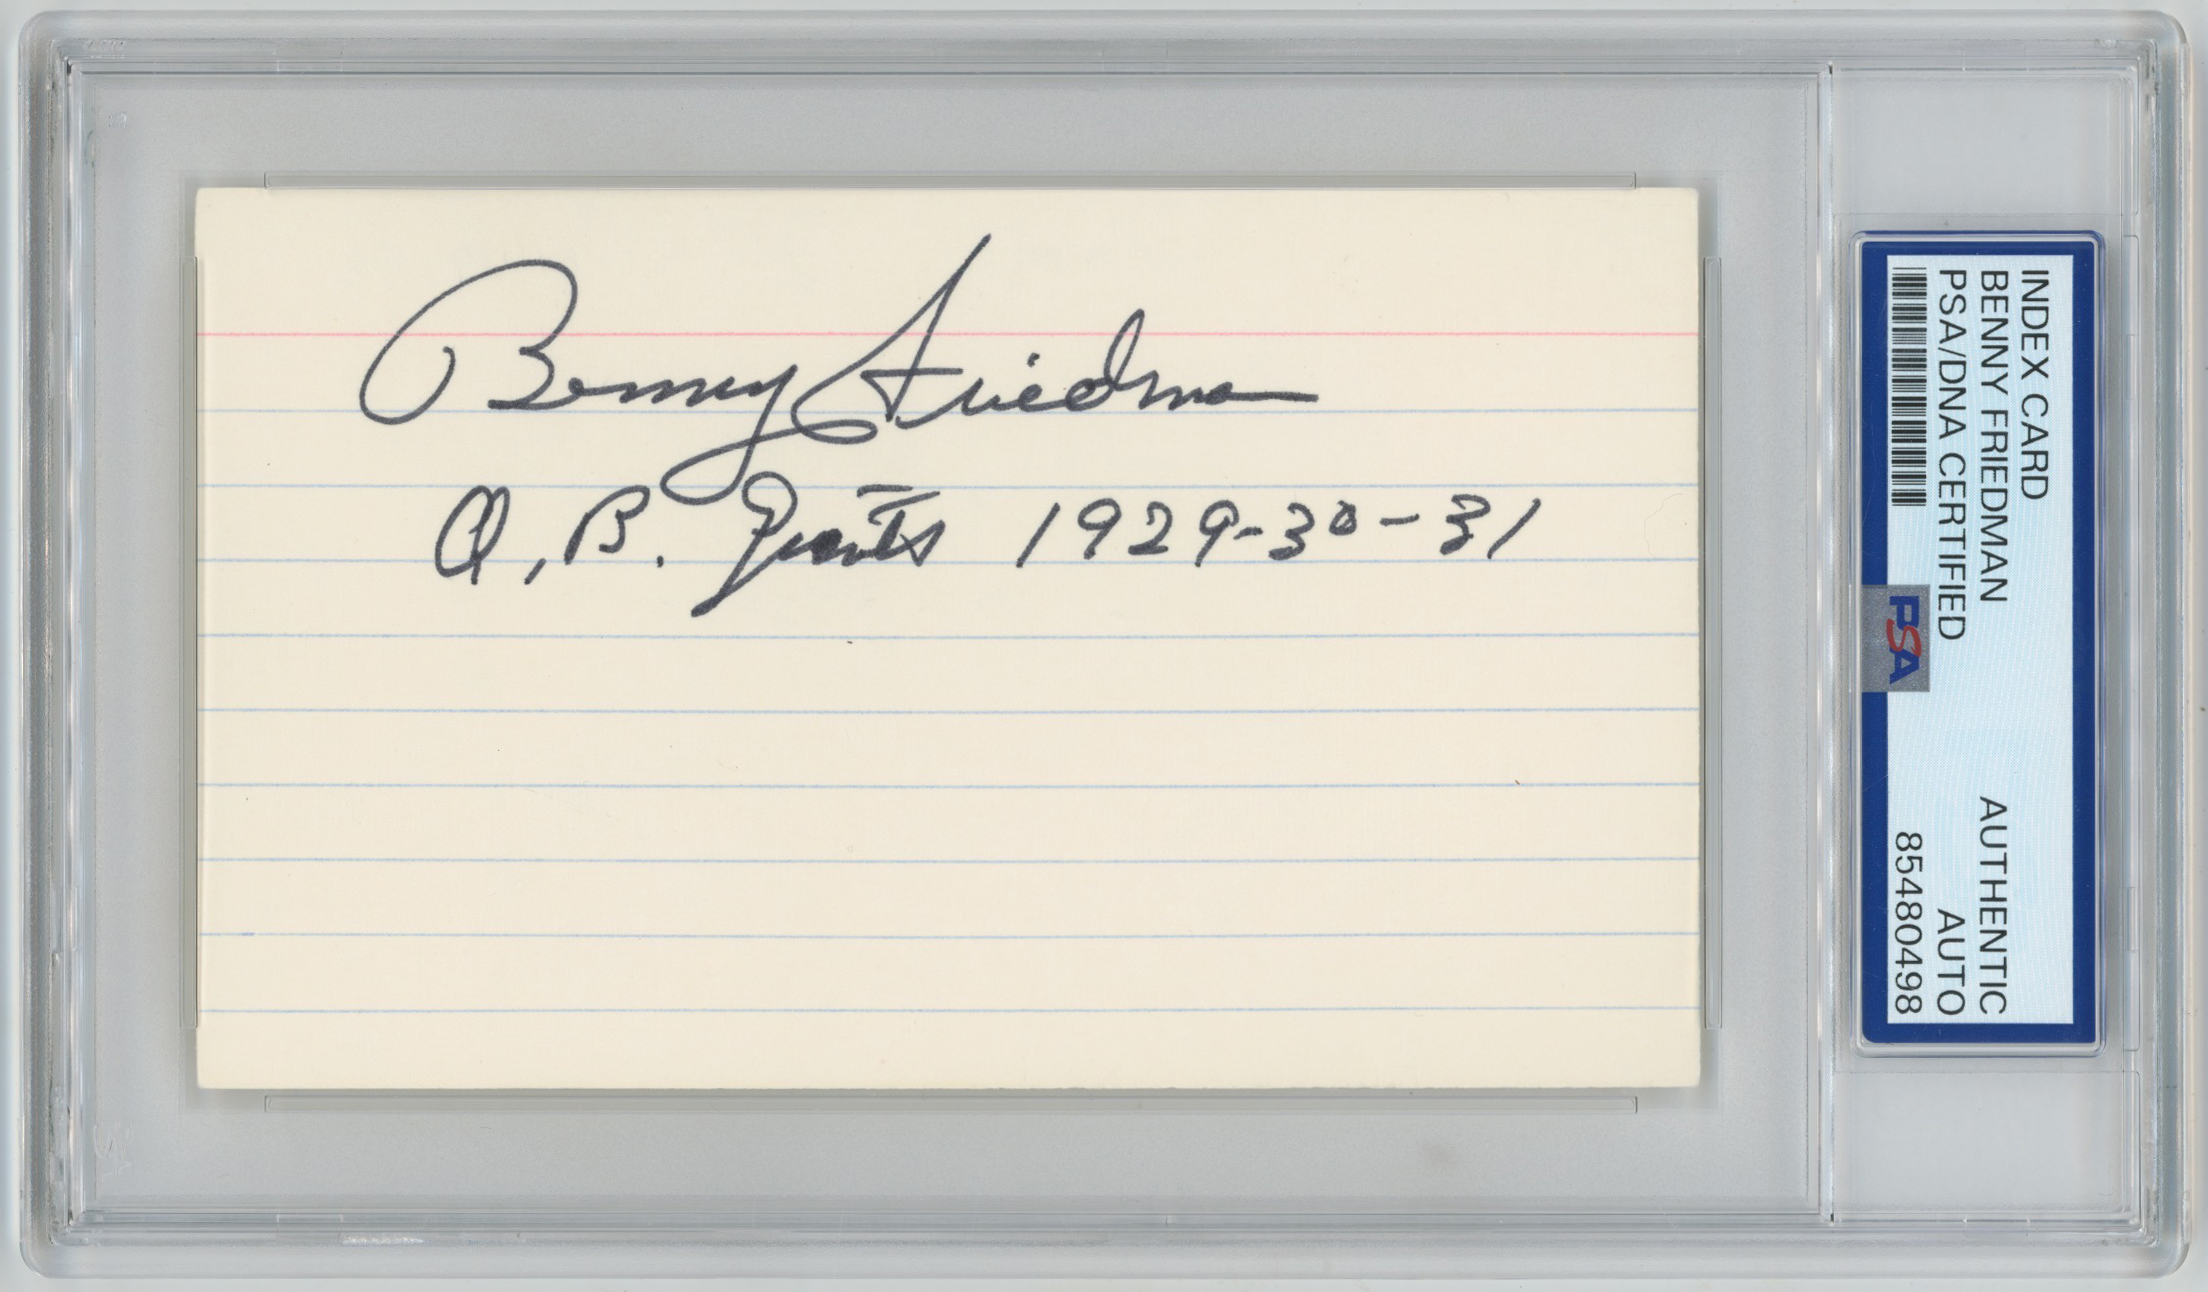 Benny Friedman
Q, B. Giants 1929-30-31
INDEX CARD
BENNY FRIEDMAN AUTHENTIC
PSA/DNA CERTIFIED AUTO
85480498
PSA